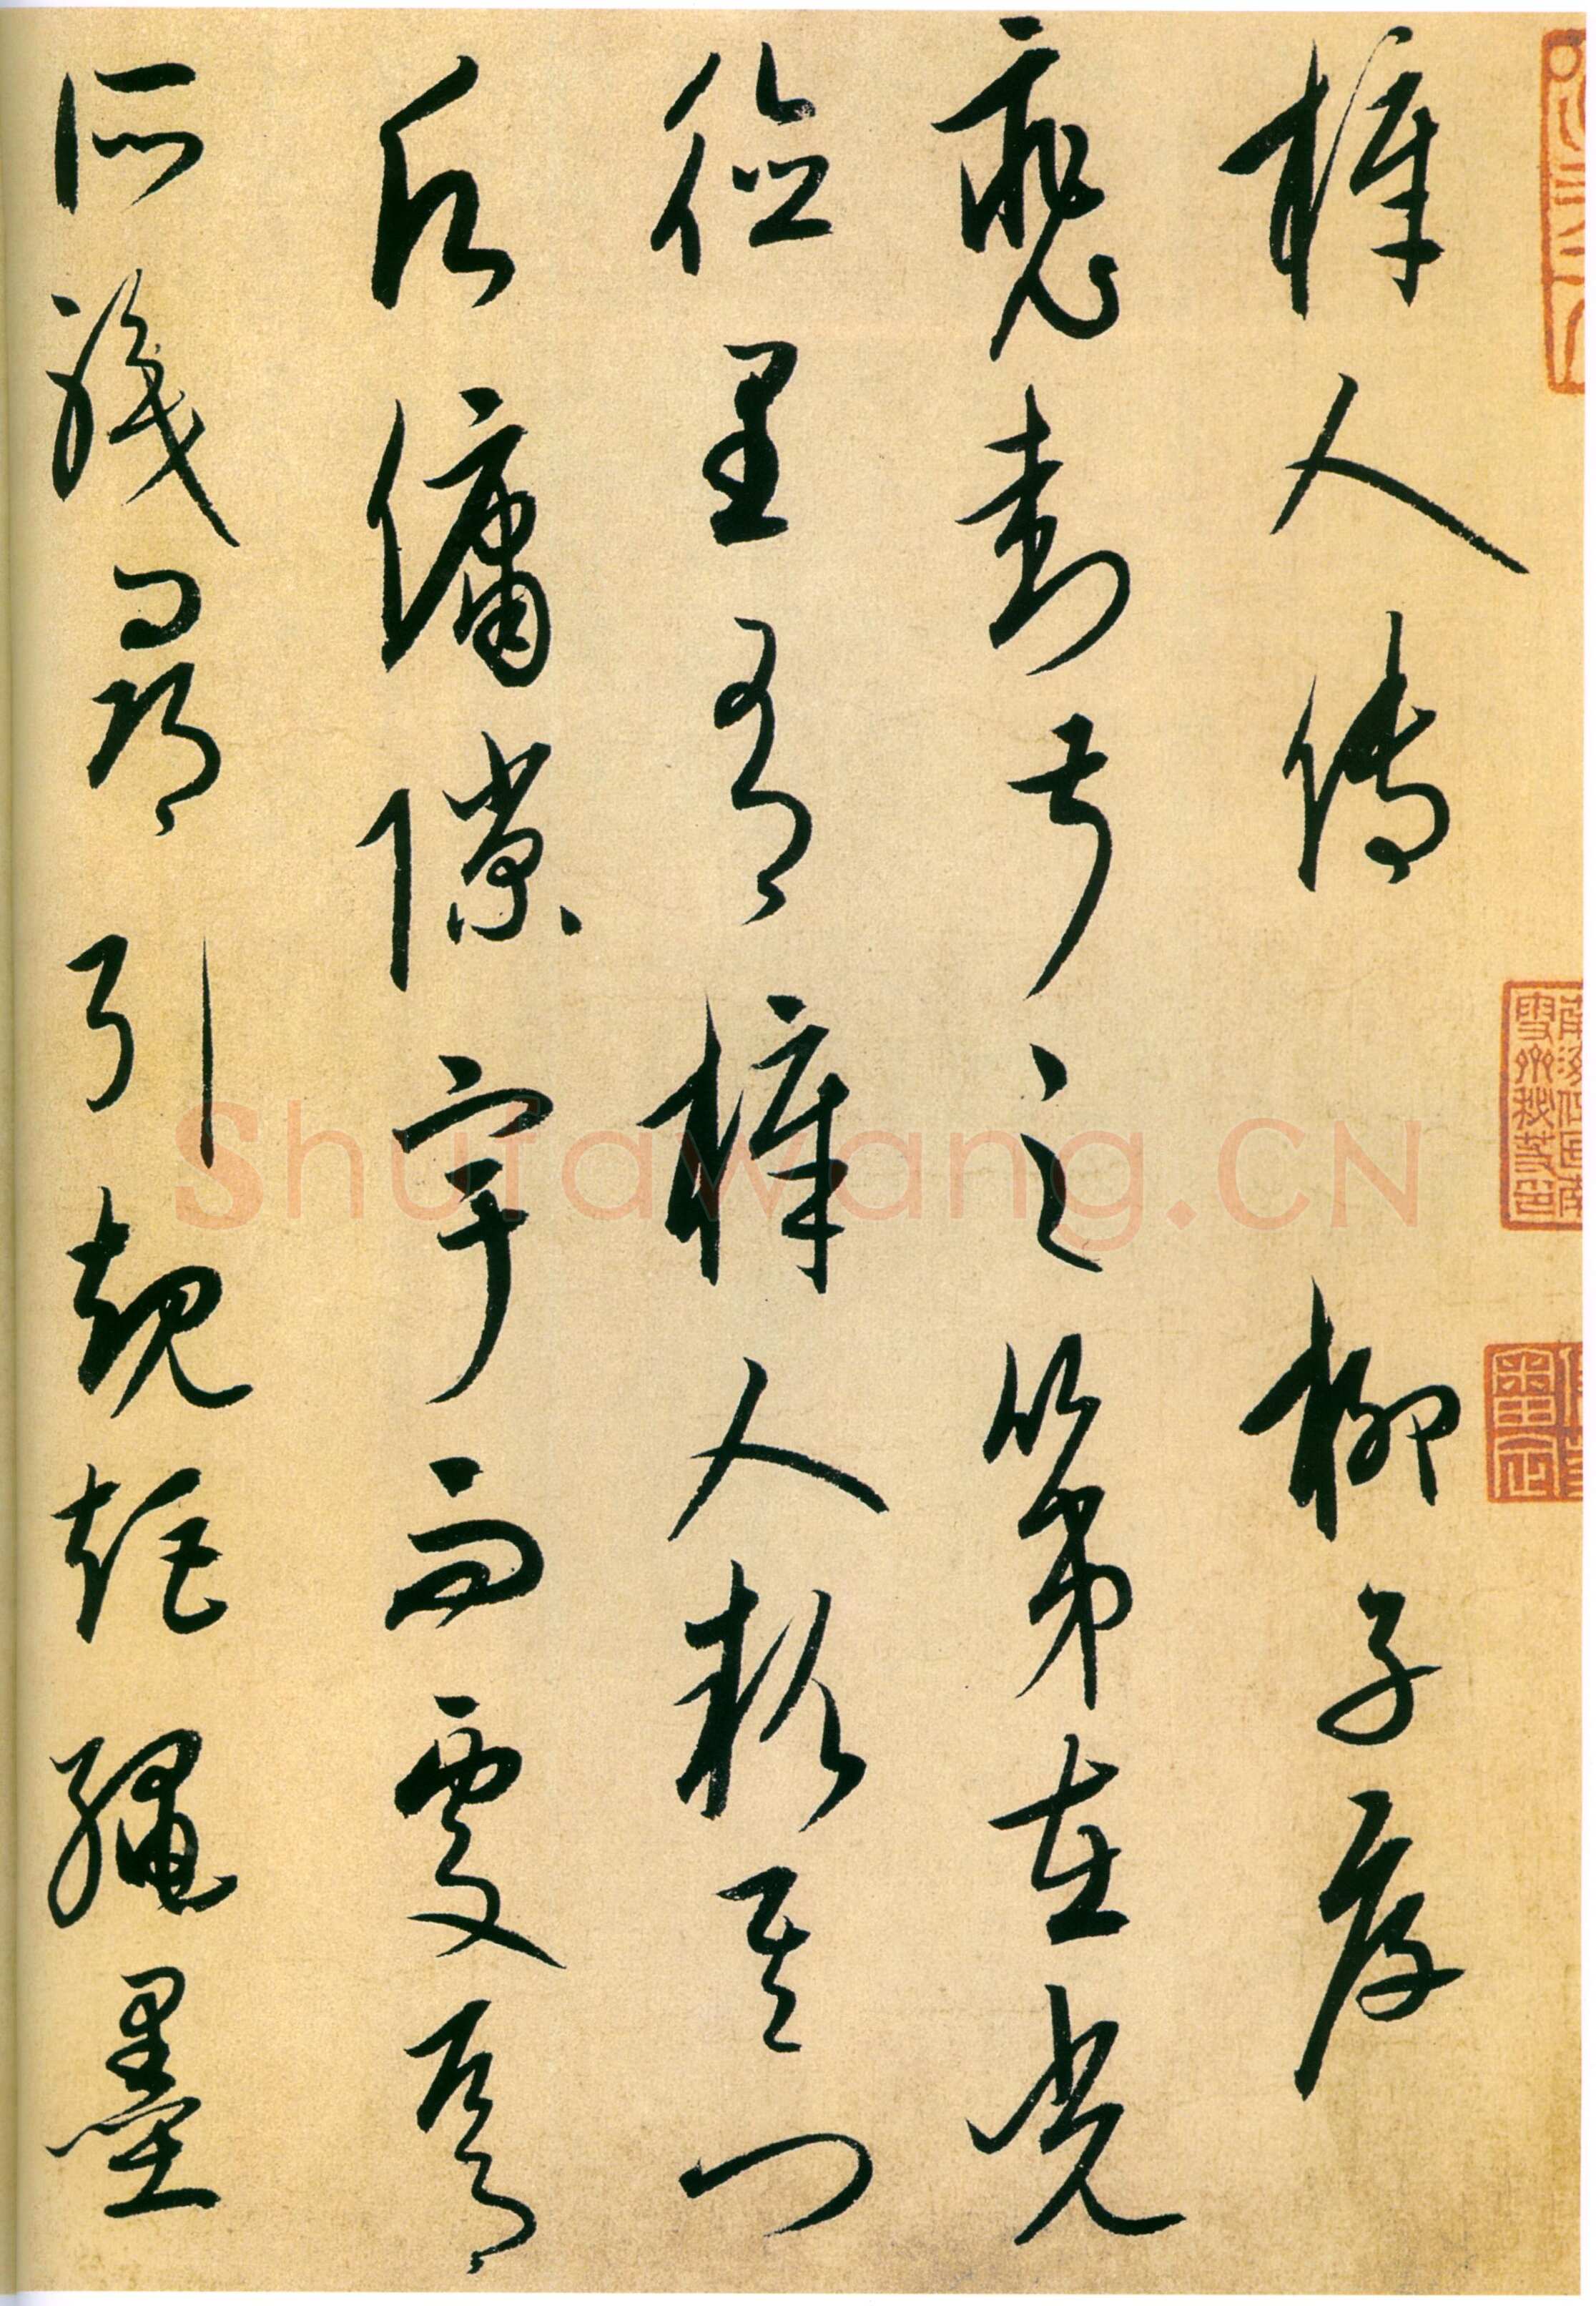 梓人傳 柳子厚
裴封叔之第在光
德里有梓人款其門
願傭隙宇而處焉
所職尋引規矩繩墨
Shufawang.CN